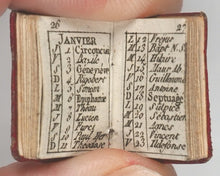 26
JANVIER
J 1 Circoncis
V 2 Basile
S 3 Geneviève
D 4 Rigobert
L 5 Simeon
M 6 Epiphanie
M 7 Théau
J 8 Lucien
V 9 Furcy
S 10 Paul Her
D 11 Théodose
27
L 12
M 13 Bapt N.S.
M 14 Hilaire
J 15 Maur Ab
V 16 Guillaume
S 17 Antoine
D 18 Septuage
L 19 Sulpice
M 20 Sébastien
M 21
J 22 Vincent
V 23 Ildefonse